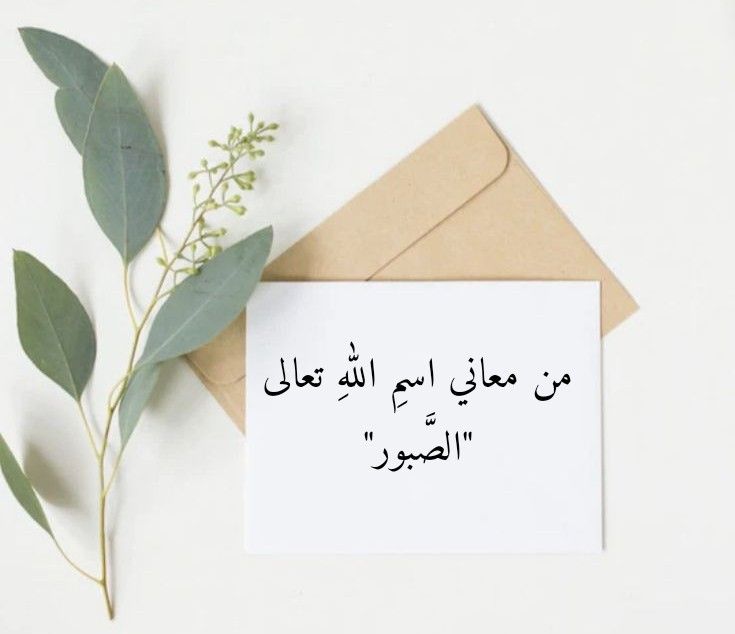 من معاني اسمِ اللهِ تعالى
"الصَّبور"